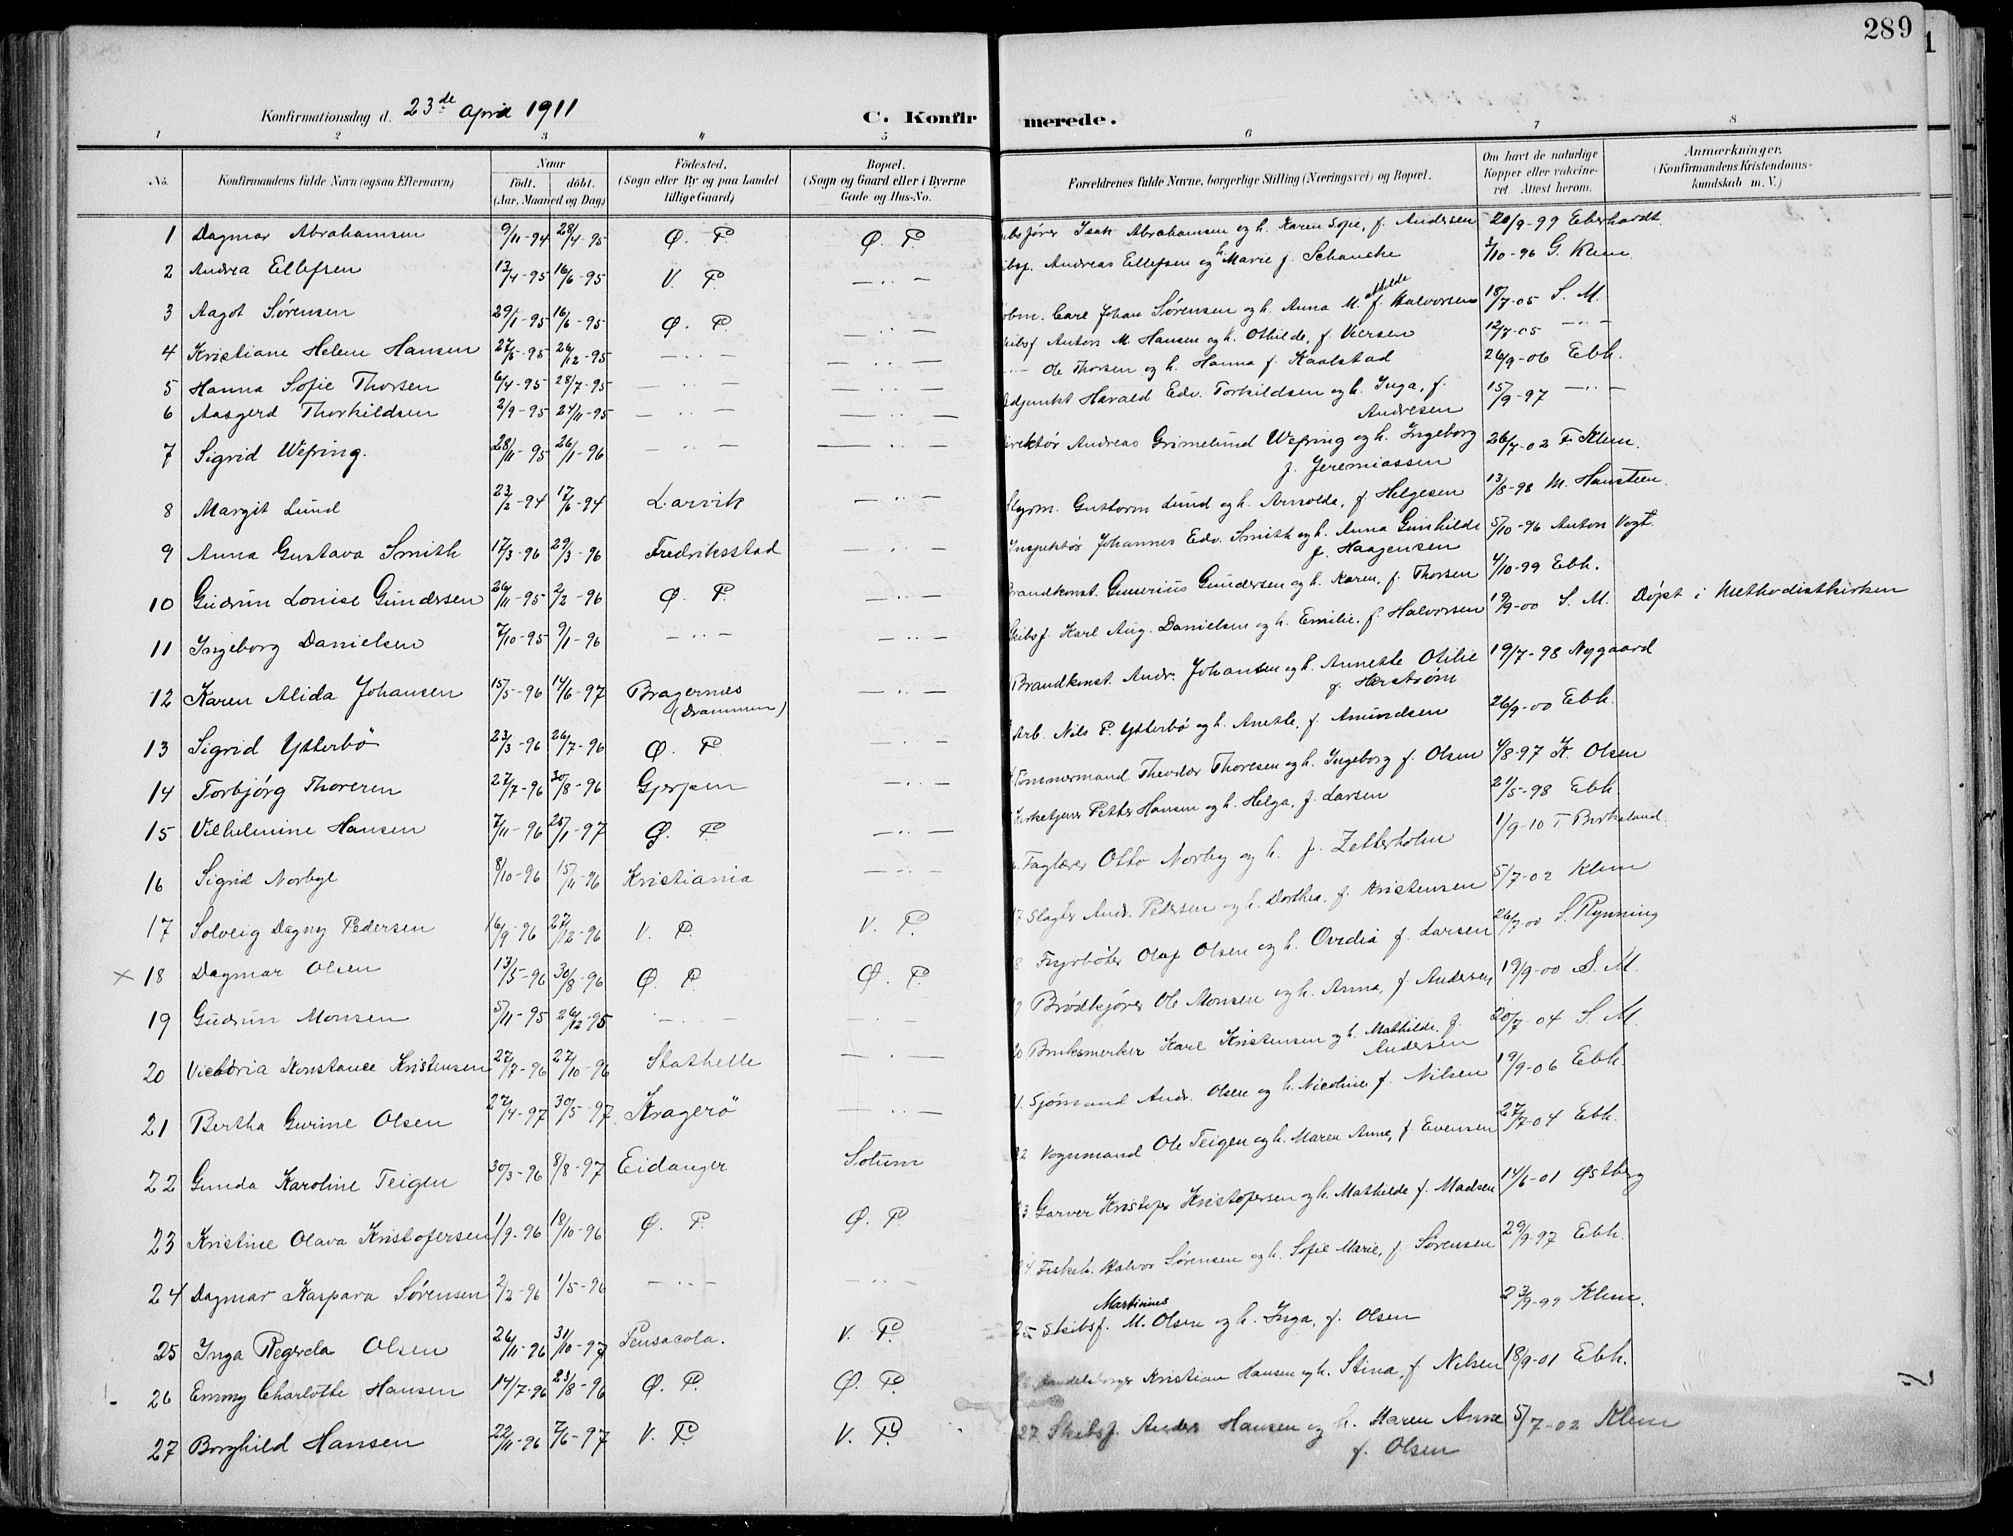 289
Konfirmationsdag d. 23de April 1911
C. Konfirmerede.
1 2 3 4 5 6 7 8
No. Konfirmandens fulde Navn (ogsaa Efternavn) Naar født. døbt. (Aar, Maaned og Dag) Fødested. (Sogn eller By og paa Landet tillige Gaard) Bopæl. (Sogn og Gaard eller i Byerne Gade og Hus-No. Forældrenes fulde Navne, borgerlige Stilling (Næringsvei) og Bopæl. Om havt de naturlige Kopper eller vakcineret. Attest herom. Anmærkninger. (Konfirmandens Kristendomskundskab m. V.)
1 Dagmar Abrahamsen 9/11-94 28/4-95 Ø. P. Ø. P. Isak Abrahamsen og h. Karen Sofie, f. Andersen 20/9-99 Eberhardt.
2 Andrea Ellefsen 13/4-95 16/6-95 V. P. —··— Andreas Ellefsen og h. Marie f. Schanche 3/10-96 G. Klem
3 Aagot Sørensen 29/1-95 16/6-95 Ø. P. —··— Carl Johan Sørensen og h. Anna M. f. Halvorsen 18/7-05 S. M.
4 Kristiane Helene Hansen 27/5-95 26/12-95 —··— —··— Anton M. Hansen og h. Othilde, f. Iversen 12/7-05 —··—
5 Hanna Sofie Thorsen 6/4-95 28/7-95 —··— —··— Ole Thorsen og h. Hanna f. Kaalstad 26/9-06 Ebh.
6 Aasgerd Thorkildsen 2/9-95 24/11-95 —··— —··— Adjunkt Harald Edv. Torkildsen og h. Inga, f. Andresen 15/9-97 —··—
7 Sigrid Wefring. 28/11-95 26/1-96 —··— —··— Direktør Andreas Grimelund Wefring og h. Ingeborg f. Jeremiassen 26/7-02 F. Klem.
8 Margit Lund 23/2-94 17/6-94 Larvik —··— Styrm. Guttorm Lund og h. Arnolda, f. Helgesen 13/8-98 M. Hansteen.
9 Anna Gustava Smith 17/3-96 29/3-96 Fredriksstad —··— Inspektør Johannes Edv. Smith og h. Anna Gunhilde f. Haagensen 5/10-96 Anton Vogt.
10 Gudrun Lovise Gundersen 26/11-95 2/2-96 Ø. P. —··— Brandkonst. Gunerius Gundersen og h. Karen, f. Thorsen 4/10-99 Ebh.
11 Ingeborg Danielsen 7/10-95 9/1-96 —··— —··— Skibsf. Karl Aug. Danielsen og h. Emilie, f. Halvorsen 19/9-00 S. M. Døpt i Methodistkirken
12 Karen Alida Johansen 15/5-96 14/6-97 Bragernes (Drammen) —··— Brandkonst. Andr. Johansen og h. Annette Otilie f. Herstrøm 19/7-98 Nygaard
13 Sigrid Ytterbø 23/3-96 26/7-96 Ø. P. —··— Arb. Nils P. Ytterbø og h. Anette, f. Amundsen 26/9-00 Ebh.
14 Torbjørg Thoresen 27/7-96 30/8-96 Gjerpen —··— Tømmermand Theodor Thoresen og h. Ingeborg f. Olsen 4/8-97 K. Olsen
15 Vilhelmine Hansen 7/11-96 25/1-97 Ø. P. —··— Kirketjener Petter Hansen og h. Helga, f. Larsen 21/5-98 Ebh.
16 Sigrid Norbye 8/10-96 15/11-96 Kristiania —··— Faglærer Otto Norby og h. f. Zetterholm 1/9-10 T. Birkeland.
17 Solveig Dagny Pedersen 16/9-96 27/12-96 V. P. V. P. 17 Slagter Andr. Pedersen og h. Dorthea, f. Kristensen 5/7-02 Klem
× 18 Dagmar Olsen 13/5-96 30/8-96 Ø. P. Ø. P. Fyrbøter Olaf Olsen og h. Ovedia f. Larsen 26/7-00 S. Rynning
19 Gudrun Monsen 5/11-95 26/12-95 —··— —··— Brødkjører Ole Monsen og h. Anna, f. Andersen 19/9-00 S. M.
20 Victoria Konstance Kristensen 27/7-96 27/10-96 Stathelle —··— 20 Karl Kristensen og h. Mathilde f. Andersen 20/7-04 S. M.
21 Bertha Gurine Olsen 27/4-97 30/5-97 Kragerø —··— Sjømand Andr. Olsen og h. Nicoline f. Nilsen 19/9-06 Ebh.
22 Gunda Karoline Teigen 30/3-96 8/8-97 Eidanger Solum 22 Vognmand Ole Teigen og h. Maren Anne, f. Evensen 27/7-04 Ebh.
23 Kristine Olava Kristofersen 1/9-96 18/10-96 Ø. P. Ø. P. 23 Garver Kristofer Kristofersen og h. Mathilde f. Madsen 14/6-01 Østberg
24 Dagmar Kaspara Sørensen 2/2-96 1/5-96 —··— —··— 24 Fiskeh. Halvor Sørensen og h. Sofie Marie, f. Sørensen 29/9-97 Ebh.
25 Inga Regerda Olsen 26/11-96 31/10-97 Pensacola. V. P. 25 Skibsf. M. Martinius Olsen og h. Inga, f. Olsen 23/9-99 Klem.
26 Emmy Charlotte Hansen 14/7-96 23/8-96 Ø. P. Ø. P. Kristian Hansen og h. Stina, f. Nilsen 18/9-01 Ebh.
27 Borghild Hansen 22/11-96 7/6-97 V. P. V. P. 27. Skibsf. Anders Hansen og h. Maren Anne f. Olsen 5/7-02 Klem